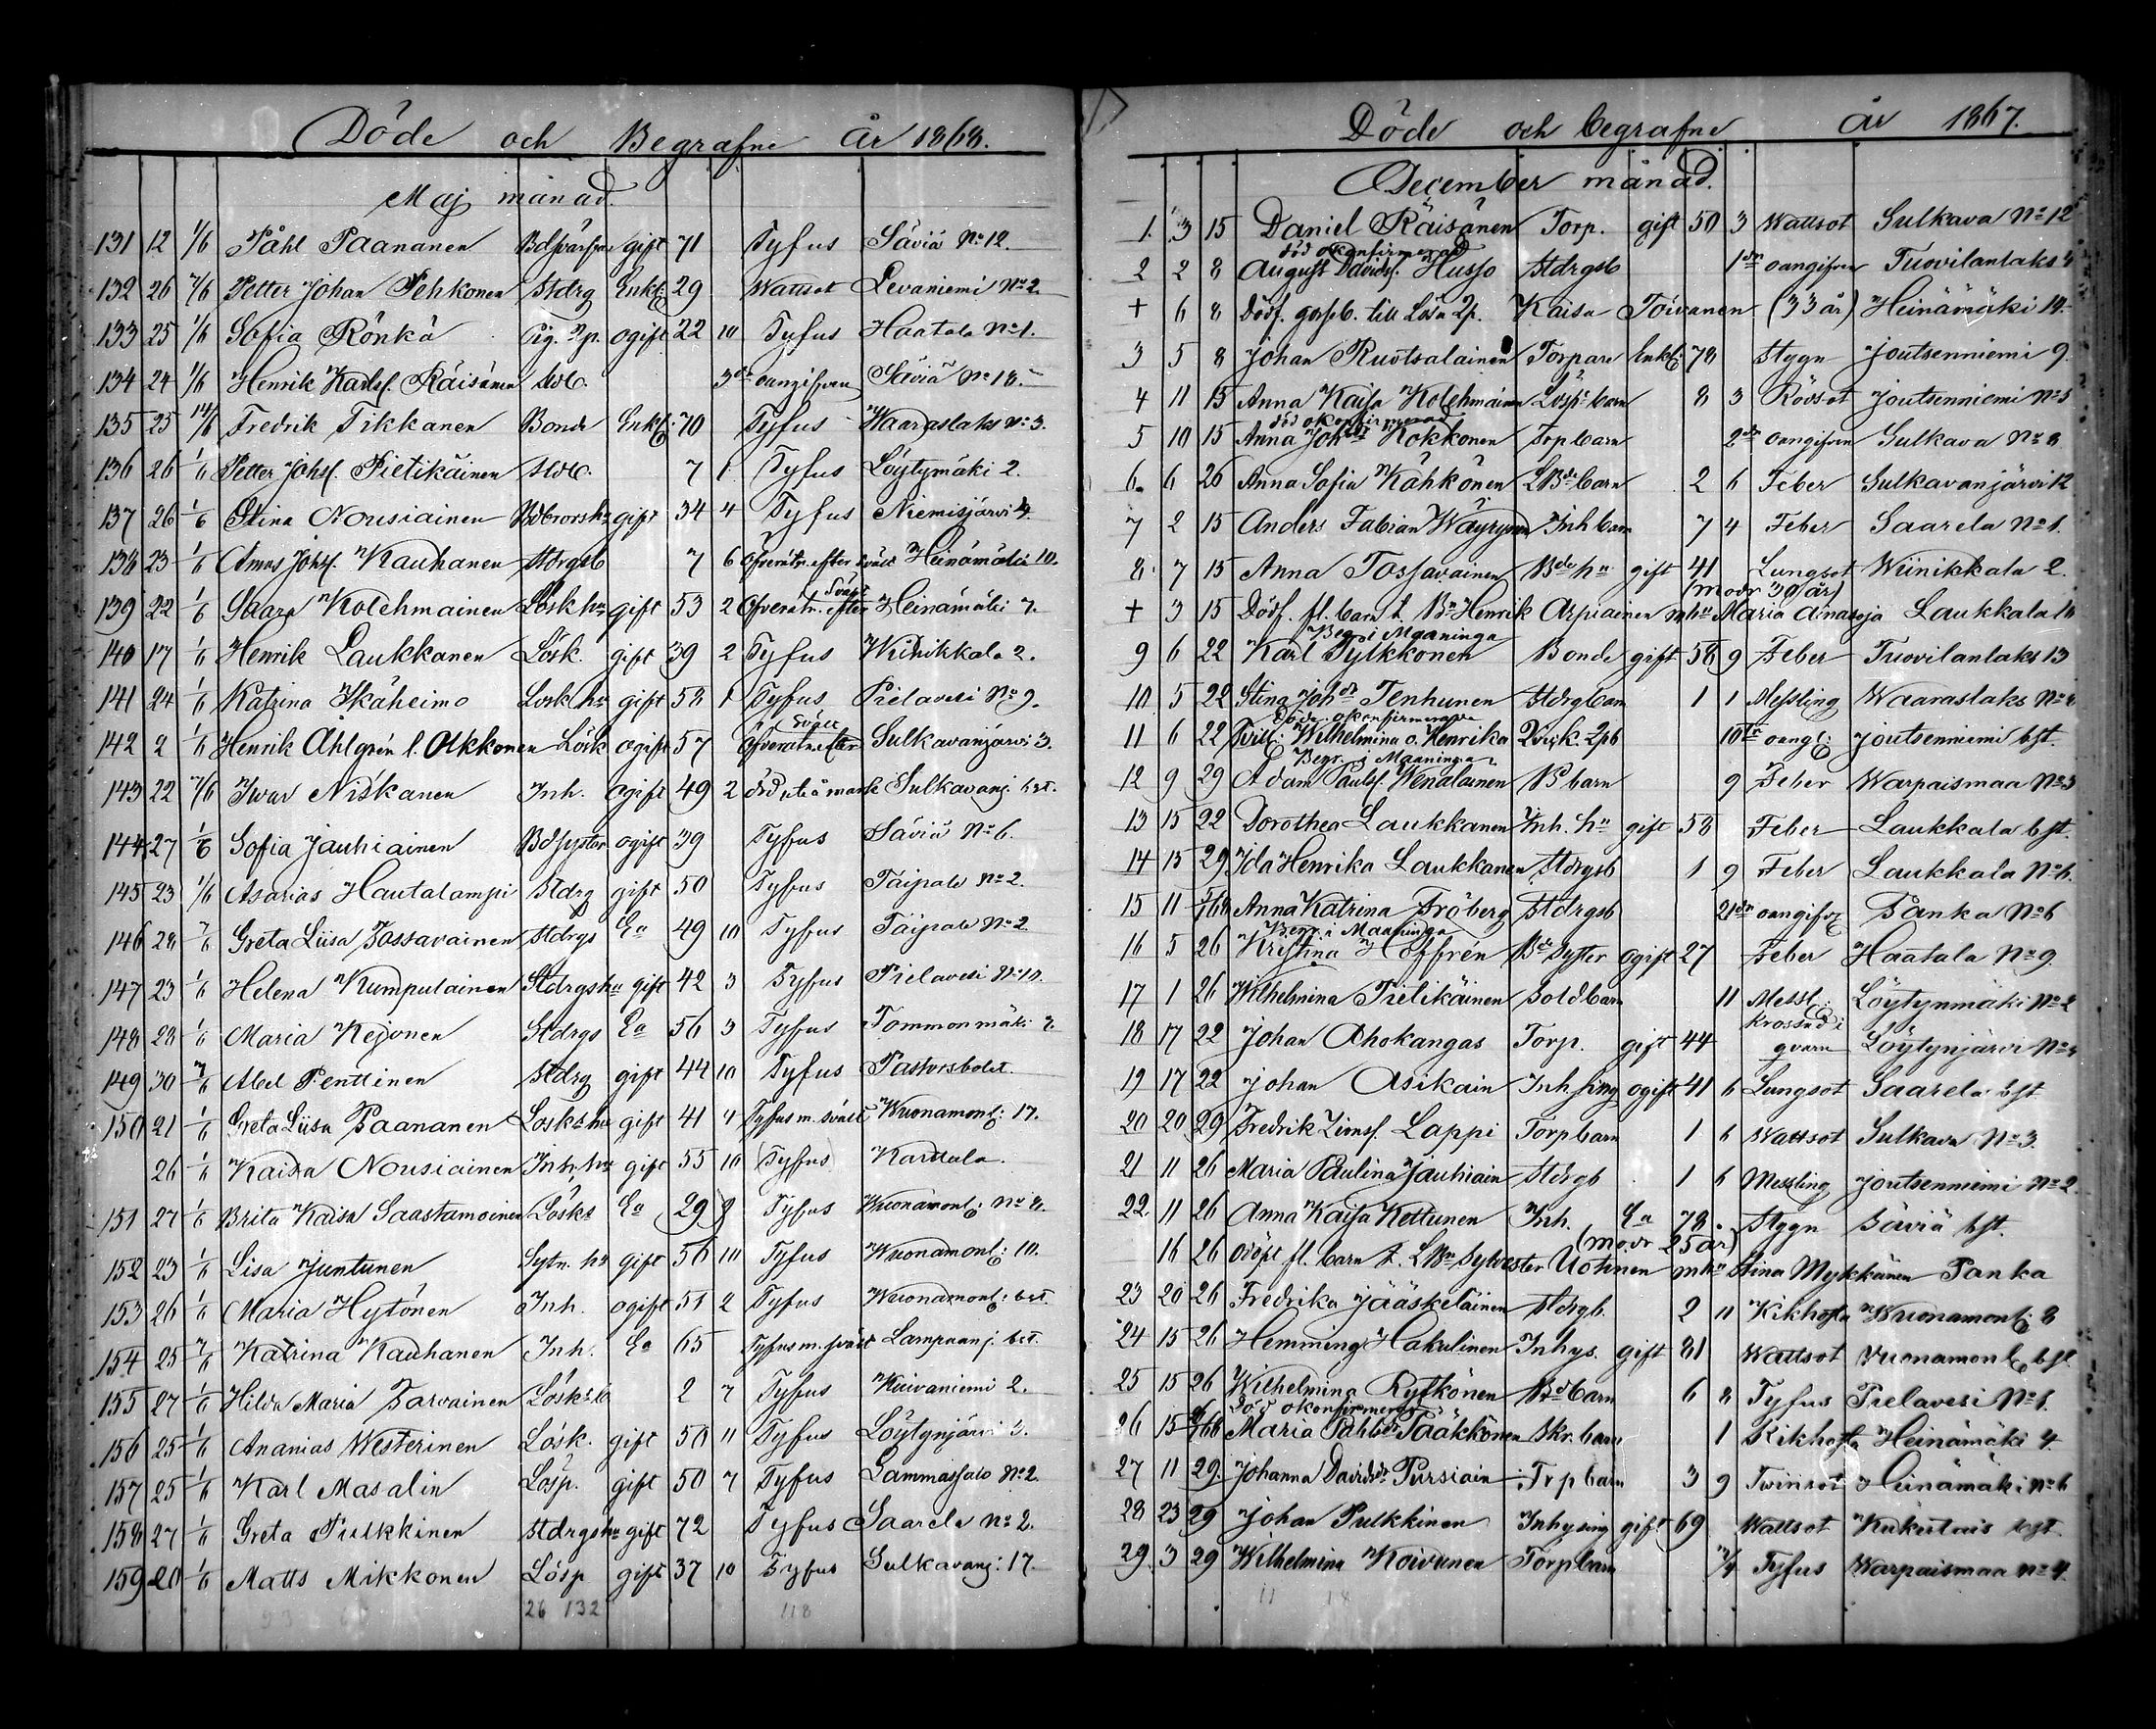 Döde och Begrafne År 1868.
Maj månad.
131 12 1/6 Påhl Paananen gift 71 Tyfus Säviä No 12.
132 26 7/6 Petter Johan Pehkonen Stdrg Enkl: 29 Wattsot Levaniemi No 2.
133 25 1/6 Sofia Rönkä Pig. ogift 22 10 Tyfus Haatala No 1.
134 24 1/6 Henrik Karlsf. Räisänen 3 oangifven Säviä No 18.
135 25 14/6 Fredrik Tikkanen Bonde Enkl: 70 Tyfus Waaraslaks No 3.
136 26 1/6 Petter Johsf. Pietikäinen 7 1 Tyfus Löytymäki 2.
137 26 1/6 Stina Nousiainen gift 34 4 Tyfus Niemisjärvi 4.
138 23 1/6 Amos Johsf. Kauhanen Stdrgsb 7 6 Öfverätn. efter svält Heinämäki 10.
139 22 1/6 Saara Kolehmainen Lösk hu gift 53 2 Öfverätn. efter Svält Heinämäki 7.
140 17 1/6 Henrik Laukkanen Lösk. gift 39 2 Tyfus Wiinikkala 2.
141 24 1/6 Katrina Ikäheimo Lösk hu gift 58 1 Tyfus Pielavesi No 9.
142 2 1/6 Henrik Åhlgrén l. Olkkonen Lösk ogift 57 Öfverätn efter svält Sulkavanjärvi 3.
143 22 7/6 Iwar Niskanen Inh. ogift 49 2 död ute å mark Sulkavanj. bst.
144 27 1/6 Sofia Jauhiainen Bdsyster ogift 39 Tyfus Säviä No 6.
145 23 1/6 Asarias Hautalampi Stdrg gift 50 Tyfus Taipale No 2.
146 28 7/6 Greta Liisa Tossavainen Stdrgs Ea 49 10 Tyfus Taipale No 2
147 23 1/6 Helena Kumpulainen Stdrgshu gift 42 3 Tyfus Pielavesi No 10.
148 28 1/6 Maria Kejonen Stdrgs Ea 56 3 Tyfus Tommonmäki 2.
149 30 7/6 Abel Penttinen Stdrg gift 44 10 Tyfus Pastorsbolet.
150 21 1/6 Greta Liisa Paananen Lösks hu gift 41 4 Tyfus m. svält Wuonamonl: 17.
26 1/6 Kaisa Nousiainen Inh. hu gift 55 10 Tyfus Karttala.
151 27 1/6 Brita Kaisa Saastamoinen Lösks Ea 29 9 Tyfus Wuonamonl: No 8.
152 23 1/6 Lisa Juntunen Sytn. hu gift 56 10 Tyfus Wuonamonl: 10.
153 26 1/6 Maria Hytönen Inh. ogift 51 2 Tyfus Wuonamonl: bst.
154 25 7/6 Katrina Kauhanen Inh. Ea 65 Tyfus m. svält Lampaanj. bst.
155 27 1/6 Hilda Maria Tarvainen Lösks b 2 7 Tyfus Kuivaniemi 2.
156 25 1/6 Ananias Westerinen Lösk. gift 50 11 Tyfus Löytynjärvi 3.
157 25 1/6 Karl Masalin Lösp. gift 50 7 Tyfus Lammassalo No 2.
158 27 1/6 Greta Pulkkinen Stdrgshu gift 72 Tyfus Saarela No 2.
159 20 1/6 Matts Mikkonen Lösp gift 37 10 Tyfus Sulkavanj: 17.
26 132 118
Döde och begrafne år 1867.
December månad.
1. 3 15 Daniel Räisänen Torp. gift 50 3 Wattsot Sulkava No 12
död okonfirmerad
2 2 8 August Davidsf. Husso Stdrgsb 1 oangifven Tuovilanlaks 4
+ 6 8 Dödf. gossb. till Lösa 2p. Kaisa Toivanen (33 år) Heinämäki 14.
3 5 8 Johan Ruotsalainen Torpare Enkl: 78 Stygn Joutsenniemi 9.
4 11 15 Anna Kaisa Kolehmainen Lösp barn 8 3 Rödsot Joutsenniemi No 5
död okonfirmerad
5 10 15 Anna Joh dr Kokkonen Torp barn 2 oangifven Sulkava No 8
6. 6 26 Anna Sofia Kähkönen LBd barn 2 6 Feber Sulkavanjärvi 12
7 2 15 Anders Fabian Wäyrynen Inh barn 7 4 Feber Saarela No 1.
8. 7 15 Anna Tossavainen Bde hu gift 41 Lungsot Wiinikkala 2.
(modr 30 år)
+ 3 15 Dödf. fl. barn t. Bn Henrik Arpiainen m hu Maria Ainasoja Laukkala 16
Begr i Maaninga
9 6 22 Karl Pylkkönen Bonde gift 58 9 Feber Tuovilanlaks 13
10 5 22 Stina Joh dr Tenhunen Stdrg barn 1 1 Messling Waaraslaks No 4
Döde okonfirmerade
11 6 22 Tvill: Wilhelmina o. Henrika 10 oangl: Joutsenniemi bst.
Begr. i Maaninga
12 9 29 Adam Paulsf. Wenäläinen Bd barn 9 Feber Warpaismaa No 3
13 15 22 Dorothea Laukkanen Inh. hu gift 58 Feber Laukkala bst.
14 15 29 Ida Henrika Laukkanen Stdrgsb 1 9 Feber Laukkala No 6.
15 11 5/1 68 Anna Katrina Fröberg Stdrgsb 21 oangifv Panka No 6
Begr. i Maaninga
16 5 26 Kristina Hoffrén Bde syster ogift 27 Feber Haatala No 9.
17 1 26 Wilhelmina Pielikäinen Sold barn 11 Messl: Löytynmäki No 2
18 17 22 Johan Ahokangas Torp. gift 44 krossad i qvarn Löytynjärvi No 4
19 17 22 Johan Asikain Inhysing ogift 41 6 Lungsot Saarela bst
20 20 29 Fredrik Zimsf. Lappi Torp barn 1 6 Wattsot Sulkava No 3.
21 11 26 Maria Paulina Jauhiain Stdrgb 1 6 Messling Joutsenniemi No 2.
22. 11 26 Anna Kaisa Kettunen Inh. Ea 78. Stygn Säviä bst.
(modr 25 år)
16 26 odöpt fl. barn t. LBn Sylvester Uotinen m hu Stina Mykkänen Panka
23 20 26 Fredrika Jääskeläinen Stdrgb. 2 11 Kikhosta Wuonamonl: 8
24 15 26 Hemming Hakulinen Inhys. gift 81 Wattsot Wuonamonl: bst.
25 15 26 Wilhelmina Rytkönen Bd barn 6 8 Tyfus Pielavesi No 1.
död okonfirmerad
26 15 Maria Påhls dr Pääkkönen Skr. barn 1 Kikhosta Heinämäki 4.
27 11 29. Johanna Davids dr Pursiain Trp barn 3 9 Twinsot Heinämäki No 6
28 23 29 Johan Pulkkinen Inhysing gift 69 Wattsot bst.
29. 3 29 Wilhelmina Koivunen Torp barn Tyfus Warpaismaa No 4.
11 18